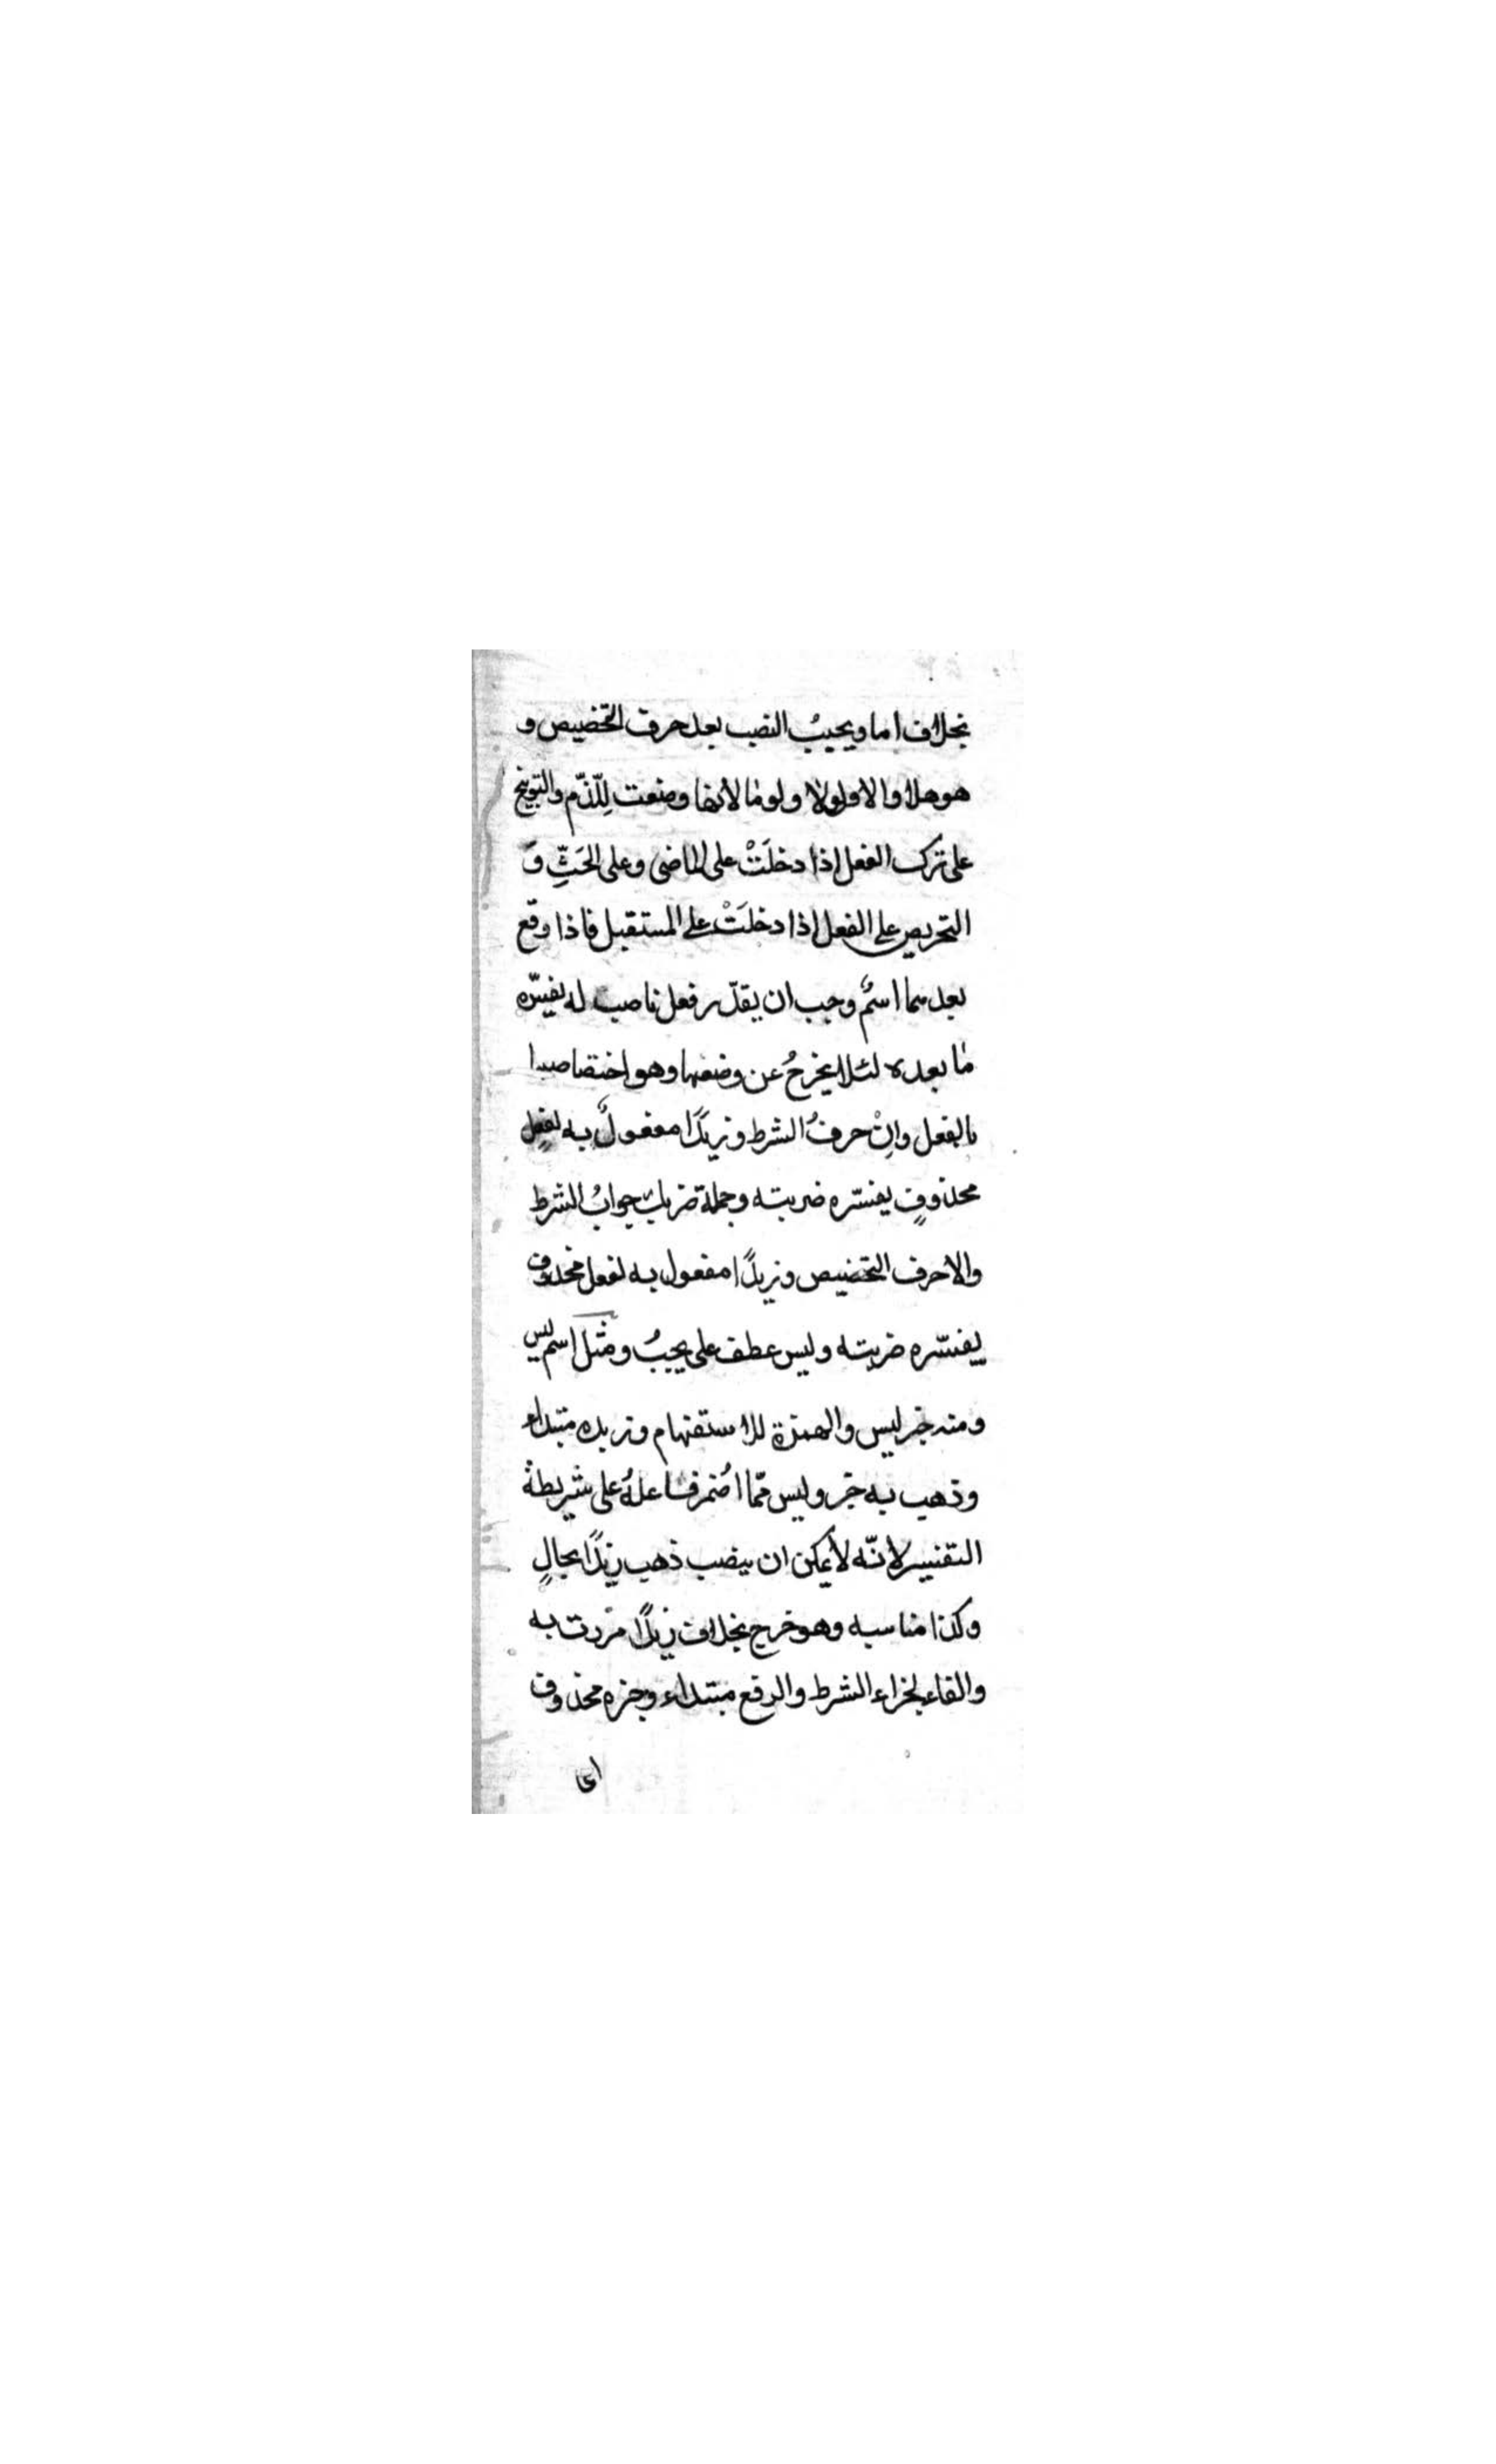 بخلاف اما ويجبُ النصب بعد حرف التحضيض و
هو هلا والا ولولا ولوما لانها وضعت لِلّذّم والتوبيخ
على ترك الفعل اذا دخلَتْ على الماضى وعلى الحَثِّ وَ
التحريص على الفعل اذا دخلَتْ على المستقبل فاذا وقع
بعدهما اسمٌ وجب ان يقدّر فعل ناصب له يفسّره
ما بعده لئلا يخرجُ عن وضعها وهو اختصاصها
بالفعل وانْ حرفُ الشرط وزيدًا مفعولٌ به لفعلٍ
محذوفٍ يفسّره ضربته وجملة ضربك جوابُ الشرط
والا حرف التحضيض وزيدًا مفعول به لفعل محذوف
يفسّره ضربته وليس عطف على يجبُ ومثل اسم ليس
ومنه خبر ليس والهمزة للاستفهام وزيده مبتداء
وذهب به خبر وليس ممّا اُضمر فاعلهُ على شريطة
التفسير لانّه لا يمكن ان ينصب ذهب زيدًا بحالٍ
وكذا مناسبه وهو خرج بخلاف زيدًا مررت به
والفاء لجزاء الشرط والرفع مبتداء وخبره محذوف
اى